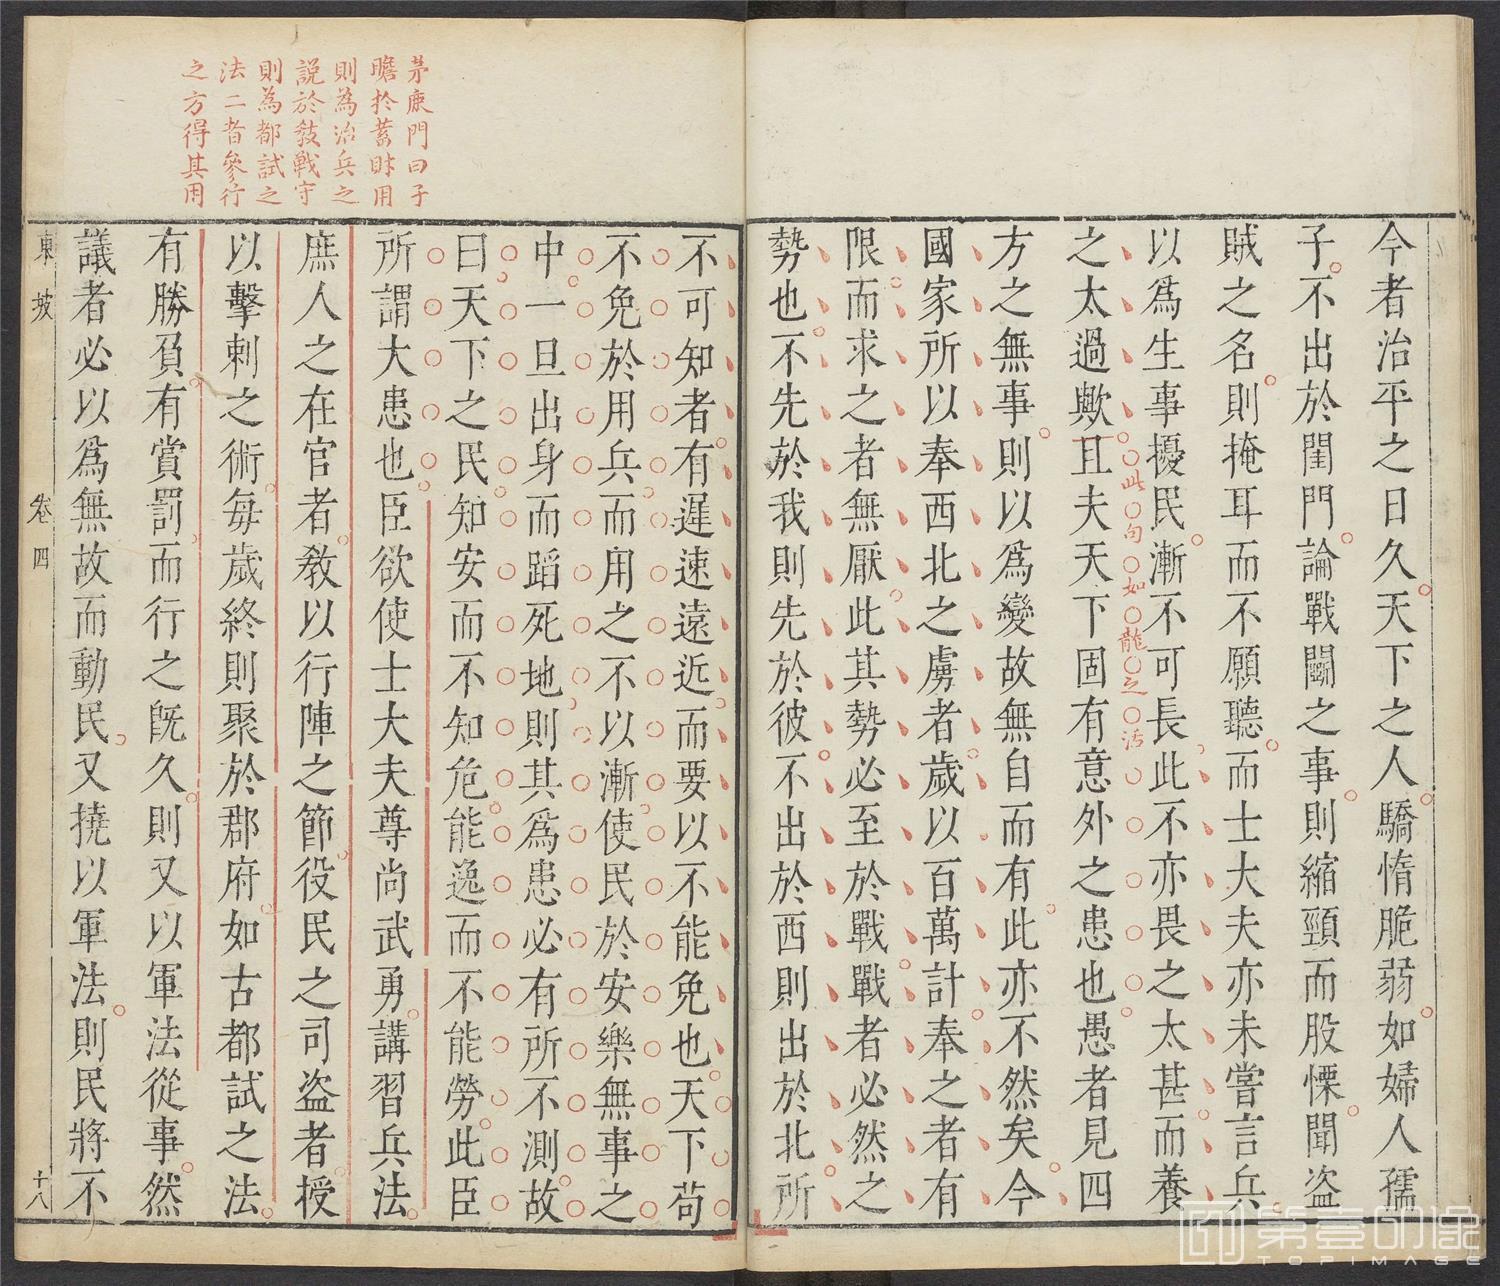 今者治平之日久天下之人驕惰脆弱如婦人孺
子不出於閨門論戰鬭之事則縮頸而股慄聞盜
賊之名則掩耳而不願聽而士大夫亦未嘗言兵
以爲生事擾民漸不可長此不亦畏之太甚而養
此句如龍之活
之太過歟且夫天下固有意外之患也愚者見四
方之無事則以爲變故無自而有此亦不然矣今
國家所以奉西北之虜者歲以百萬計奉之者有
限而求之者無厭此其勢必至於戰戰者必然之
勢也不先於我則先於彼不出於西則出於北所
茅鹿門曰子
瞻於蓄財用
則為治兵之
說於教戰守
則為都試之
法二者參行
之方得其用
不可知者有遲速遠近而要以不能免也天下苟
不免於用兵而用之不以漸使民於安樂無事之
中一旦出身而蹈死地則其爲患必有所不測故
曰天下之民知安而不知危能逸而不能勞此臣
所謂大患也臣欲使士大夫尊尚武勇講習兵法
庶人之在官者教以行陣之節役民之司盜者授
以擊刺之術每歲終則聚於郡府如古都試之法
有勝負有賞罰而行之旣久則又以軍法從事然
議者必以爲無故而動民又撓以軍法則民將不
東坡 卷四 十八
第壹印像
TOPIMAGE